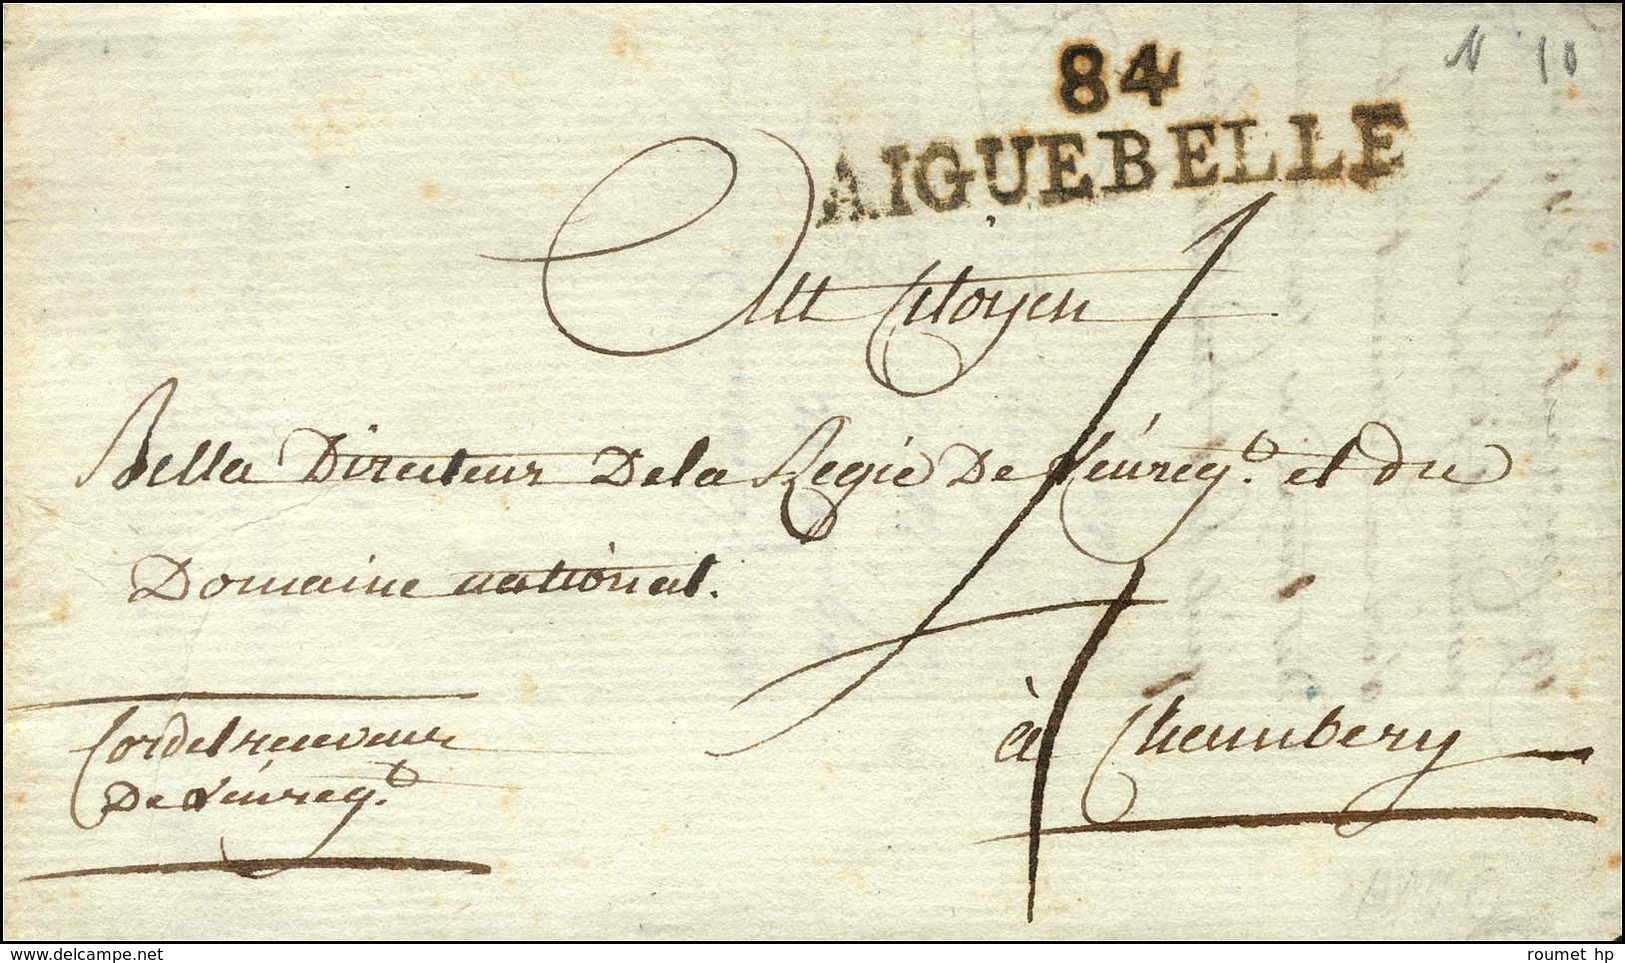 N 10
84
AIGUEBELLE
Au Citoyen
Bella Directeur De la Regie De L'enreg.t et du
Domaine national.
à Chambery
Cordel receveur
De L'enreg.t
delcampe.net
roumet hp